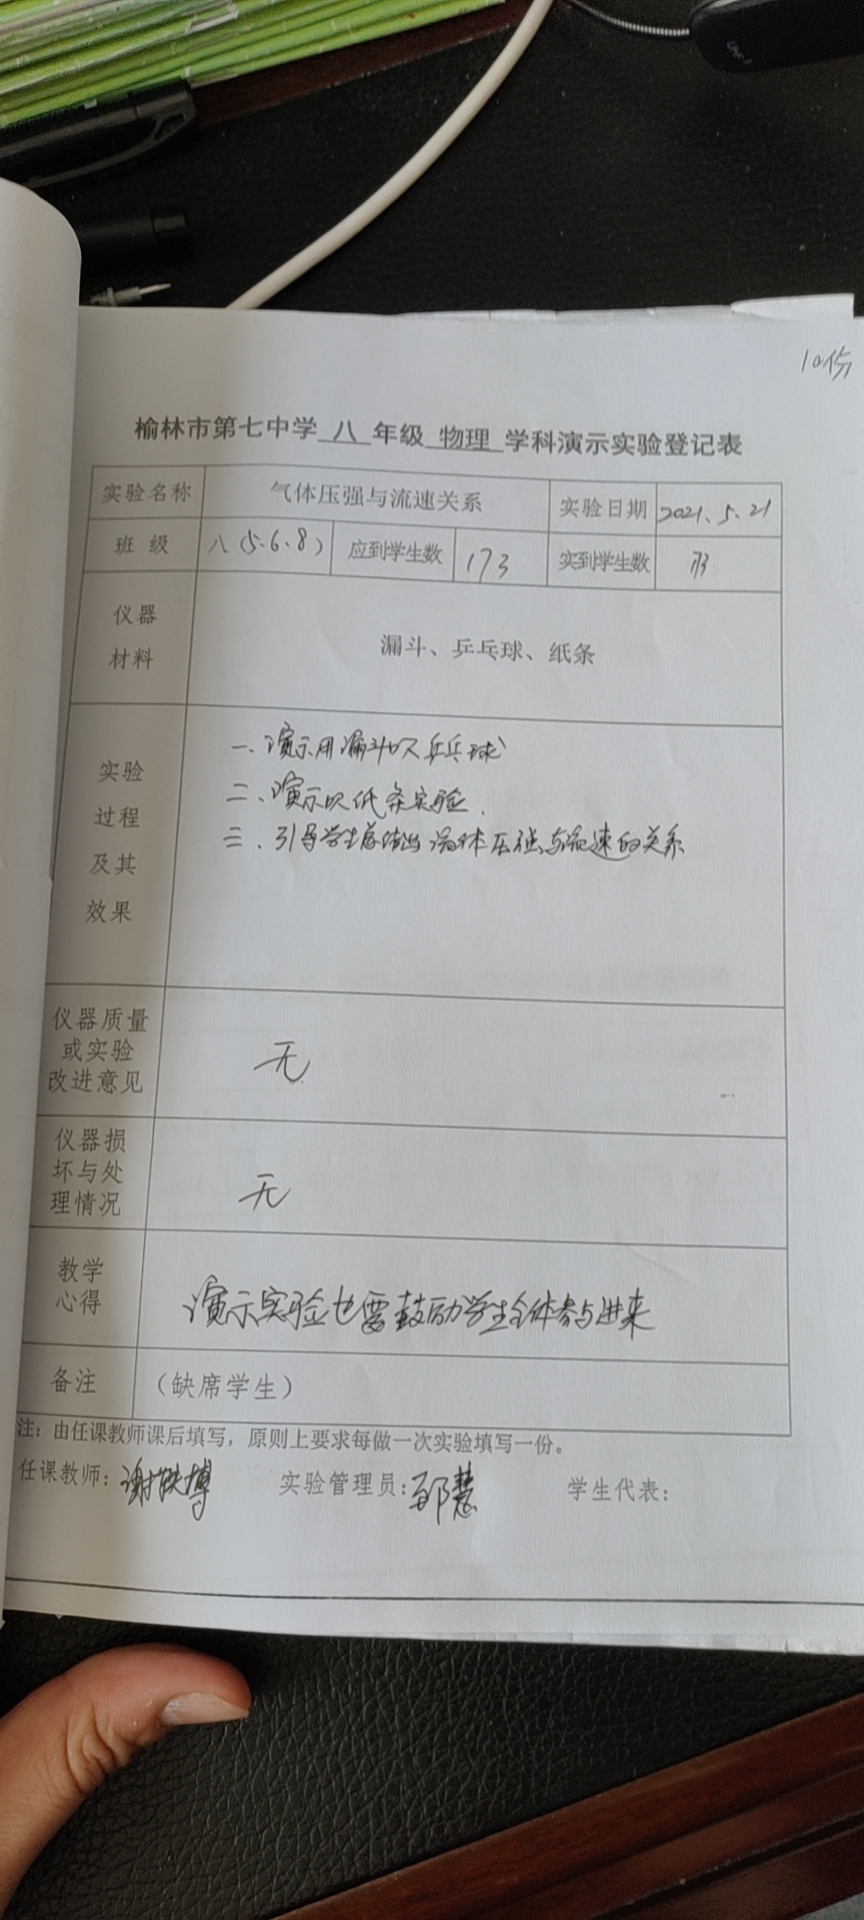 10份
榆林市第七中学 八 年级 物理 学科演示实验登记表
实验名称 气体压强与流速关系 实验日期 2021.5.21
班 级 八(5.6.8) 应到学生数 173 实到学生数 173
仪器
材料
漏斗、乒乓球、纸条
实验
过程
及其
效果
一、演示用漏斗吹乒乓球
二、演示吹纸条实验.
三、引导学生总结出流体压强与流速的关系
仪器质量
或实验
改进意见
无
仪器损
坏与处
理情况
无
教学
心得
演示实验也需鼓励学生全体参与进来
备注 (缺席学生)
注：由任课教师课后填写，原则上要求每做一次实验填写一份。
任课教师: 谢 博 实验管理员: 慧 学生代表: